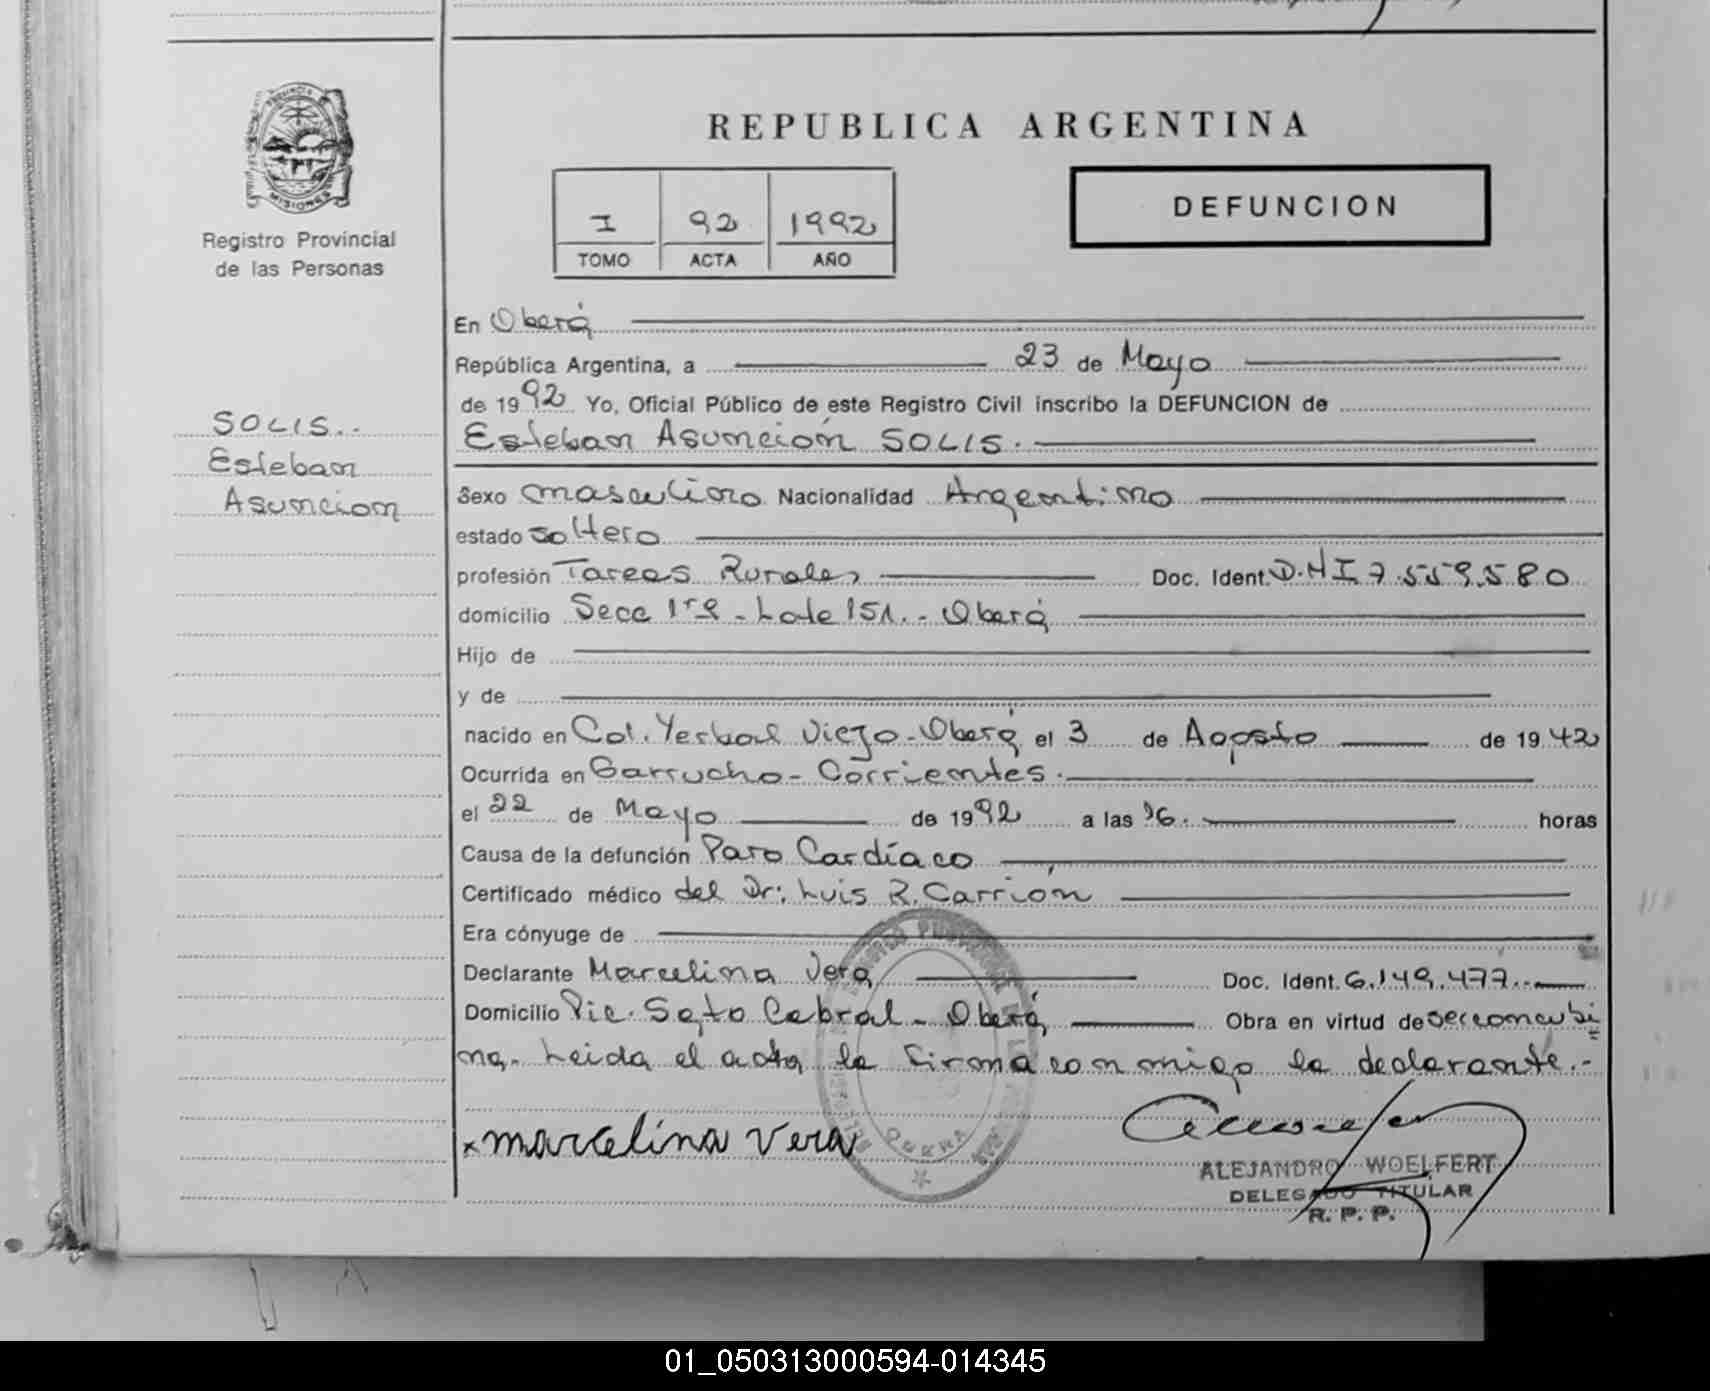 REPUBLICA ARGENTINA
MISIONES
Registro Provincial
de las Personas
I 92 1992
TOMO ACTA AÑO
DEFUNCION
SOLIS..
Esteban
Asuncion
En Oberá
República Argentina, a 23 de Mayo
de 1992 Yo, Oficial Público de este Registro Civil inscribo la DEFUNCION de
Esteban Asunción SOLIS.
Sexo masculino Nacionalidad Argentino
estado soltero
profesión Tareas Rurales Doc. Ident. D.N.I 7.559.580
domicilio Secc 1ra - Lote 151.- Oberá
Hijo de
y de
nacido en Col. Yerbal Viejo - Oberá el 3 de Agosto de 1942
Ocurrida en Garrucho - Corrientes.
el 22 de Mayo de 1992 a las 16. horas
Causa de la defunción Paro Cardíaco
Certificado médico del Dr: Luis R. Carrión
Era cónyuge de
Declarante Marcelina Vera Doc. Ident. 6.149.477.-
Domicilio Pic. Sgto Cabral - Oberá Obra en virtud de ser concubi
na. Leida el acta la firma con migo la declarante.-
x marcelina vera
ALEJANDRO WOELFERT
DELEGADO TITULAR
R. P. P.
01_050313000594-014345